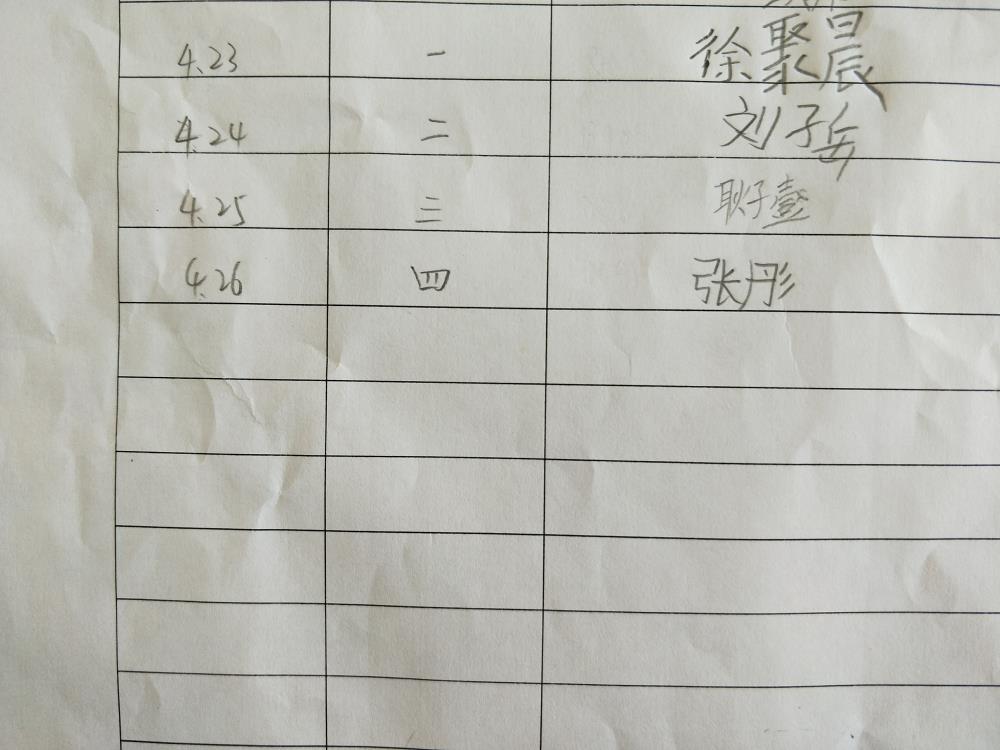 4.23 一 徐聚晨
4.24 二 刘子岳
4.25 三 耿子壹
4.26 四 张彤